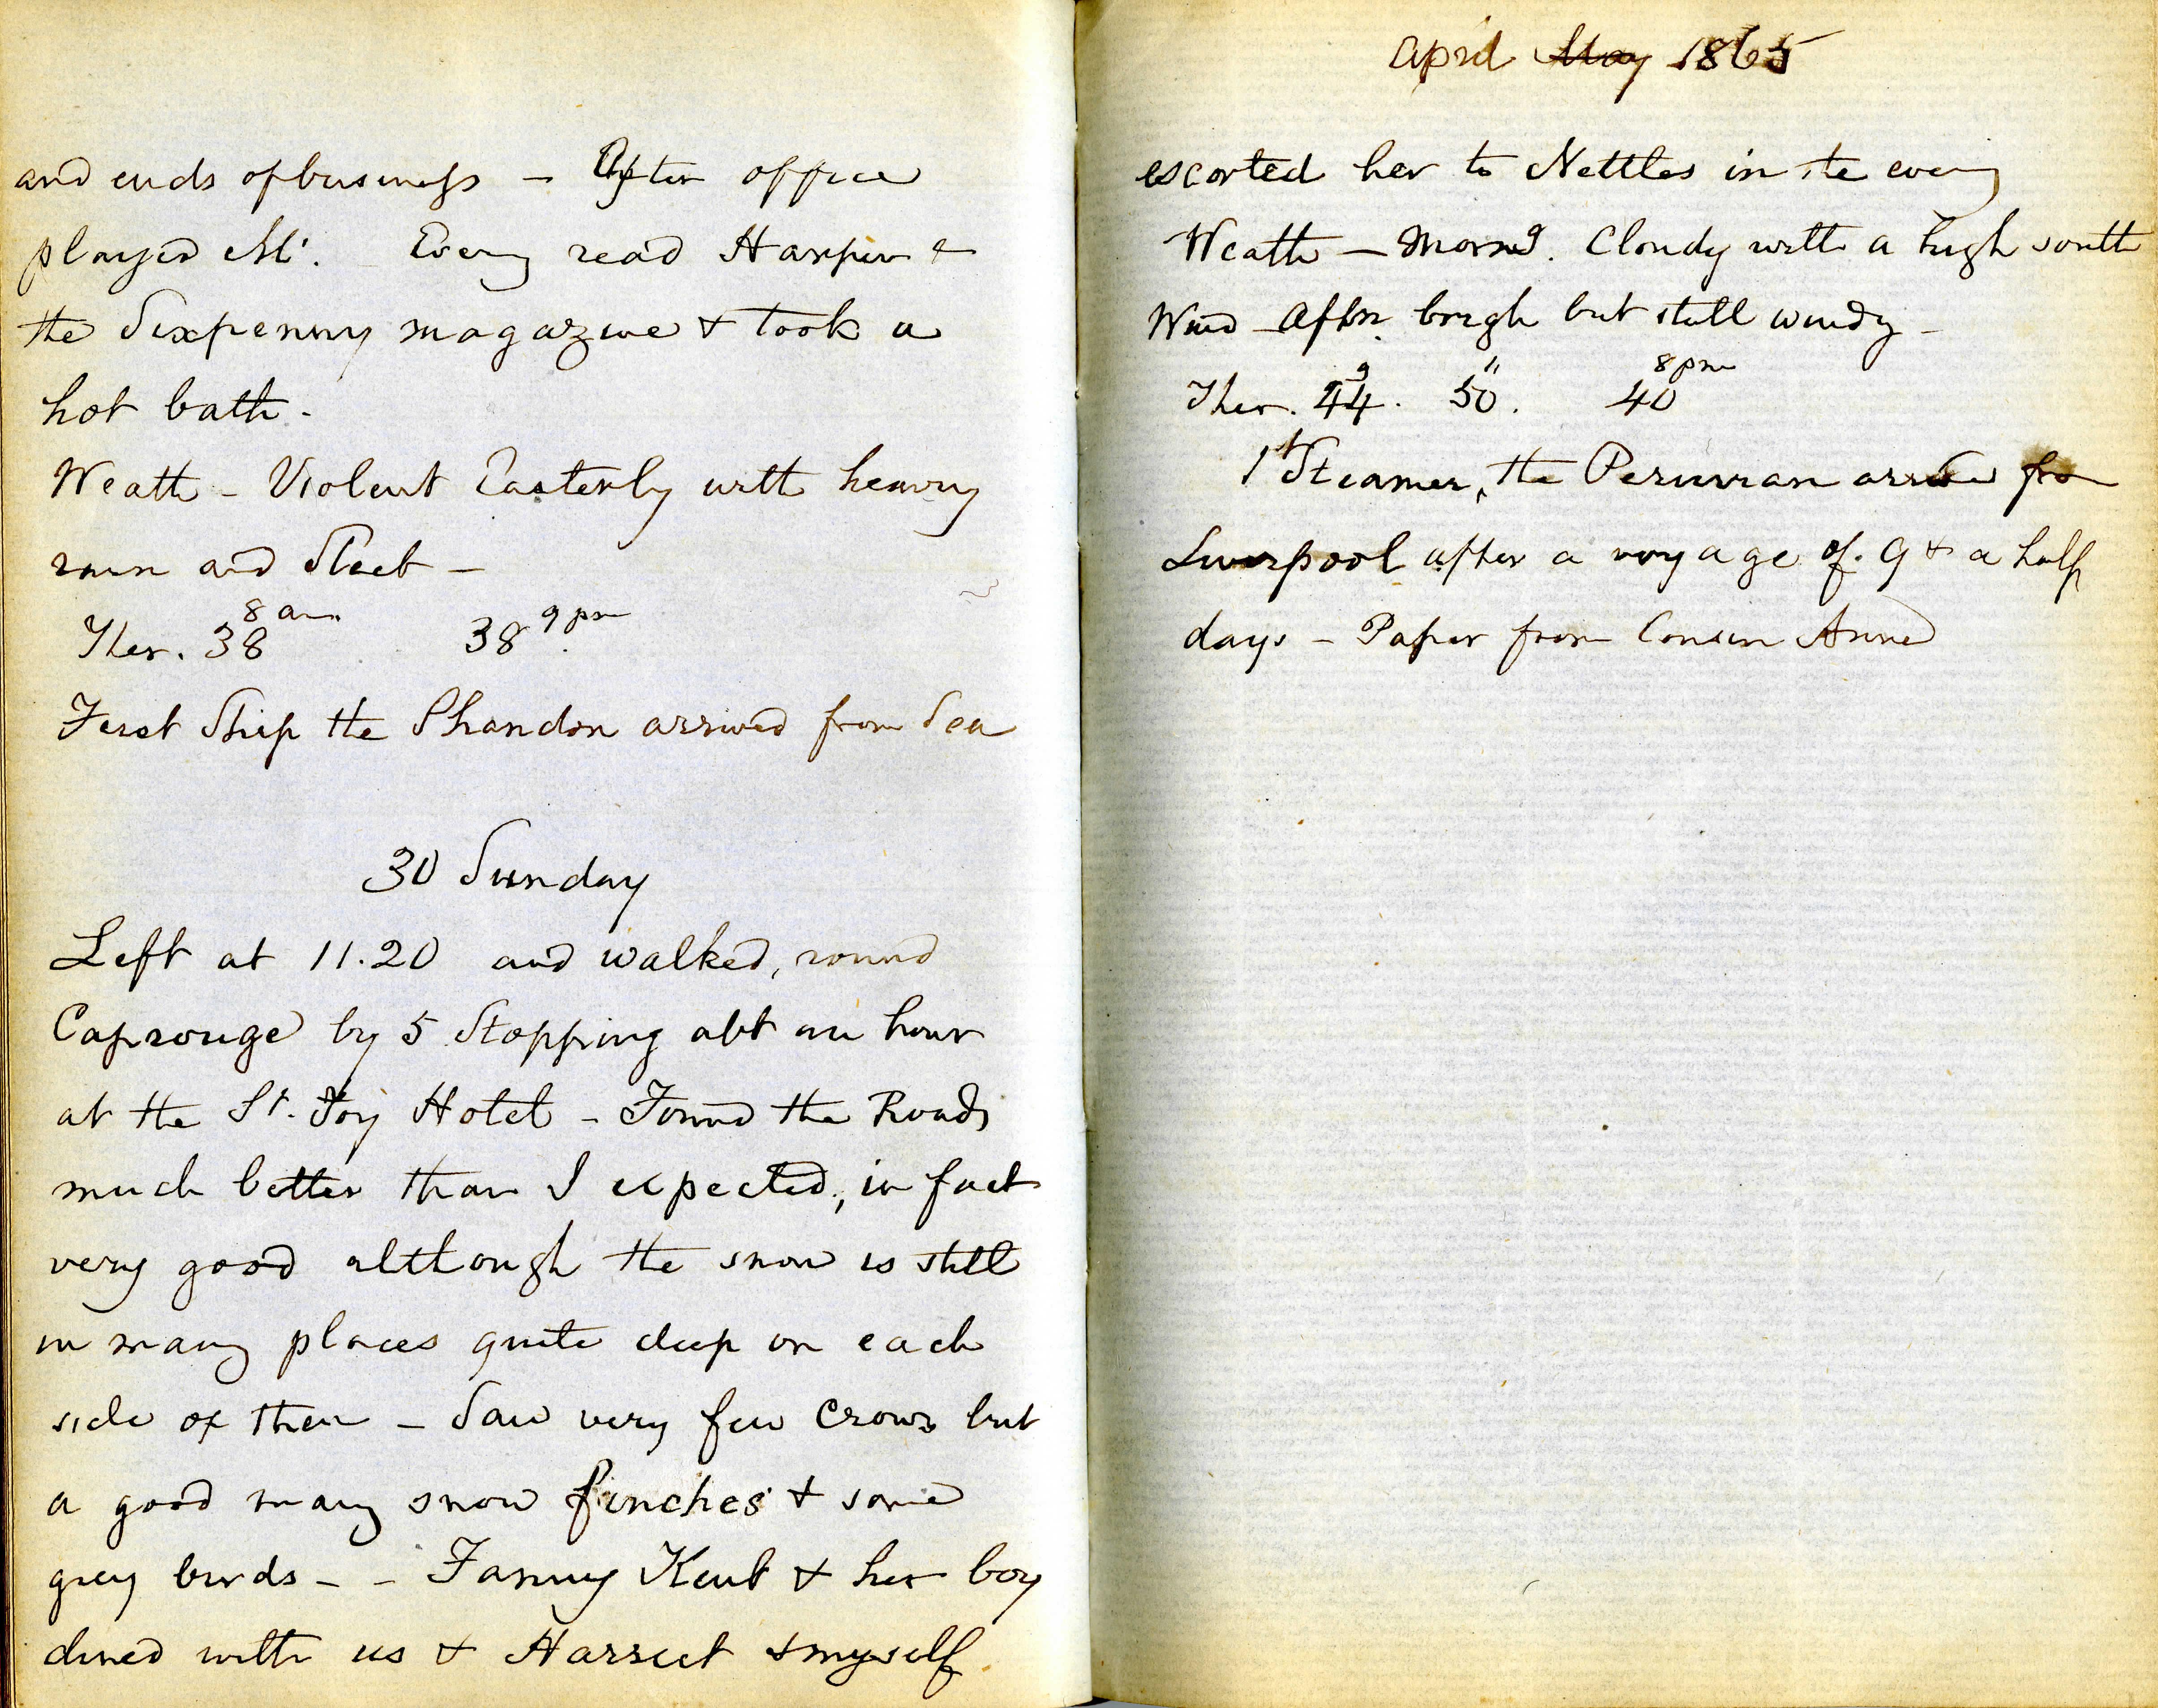 and ends of business - After office
played Mc. Eveng read Harper &
the Sixpenny magazine & took a
hot bath.
Weath - Violent Easterly with heavy
rain and Sleet -
8 am 9 pm
Ther. 38 38.
First Ship the Shandon arrived from Sea
30 Sunday
Left at 11.20 and walked, round
Caprouge by 5 Stopping abt an hour
at the St. Foy Hotel - Found the Roads
much better than I expected, in fact
very good although the snow is still
in many places quite deep on each
side of them - Saw very few Crows but
a good many snow finches & some
grey birds - - Fanny Kent & her boy
dined with us & Harriet & myself
April May 1865
escorted her to Nettles in the eveng
Weath - Morng. Cloudy with a high south
Wind - Aftn. brigh but still windy -
9 11 8 pm
Ther. 44. 50. 40
1t Steamer, the Peruvian arrived from
Liverpool after a voyage of 9 & a half
days - Paper from Cousin Anne